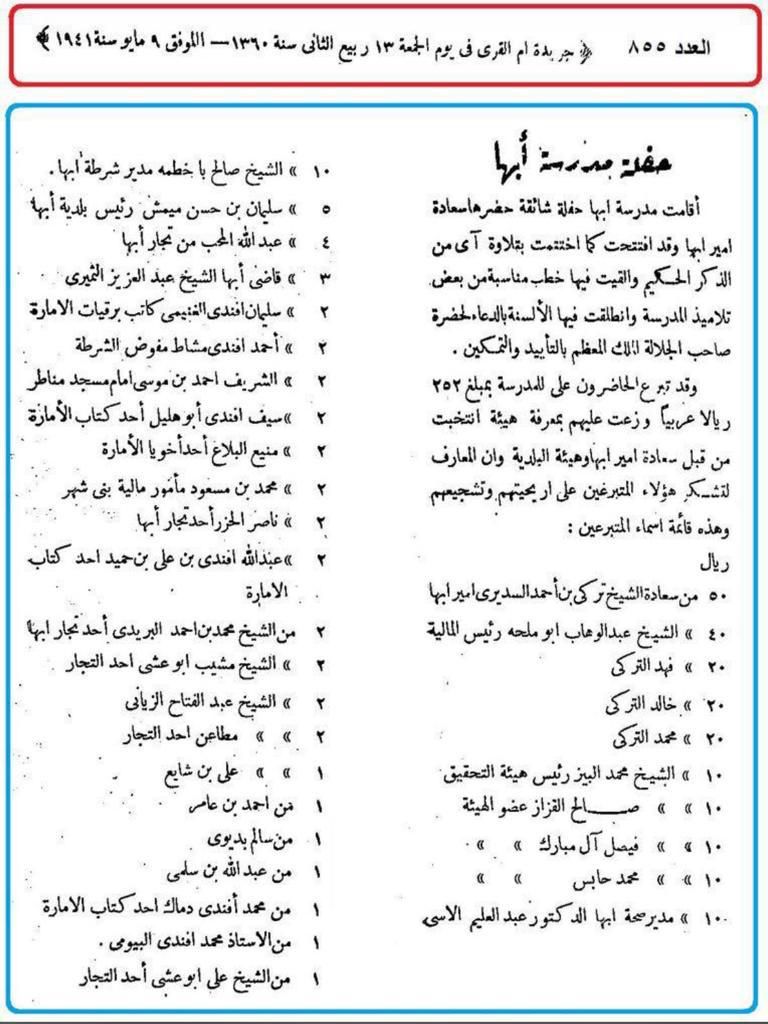 العدد ٨٥٥ ﴿ جريدة ام القرى فى يوم الجمعة ١٣ ربيع الثانى سنة ١٣٦٠ — الموفق ٩ مايو سنة ١٩٤١ ﴾
حفلة مدرسة أبها
أقامت مدرسة ابها حفلة شائقة حضرها سعادة
امير ابها وقد افتتحت كما اختتمت بتلاوة آى من
الذكر الحكيم والقيت فيها خطب مناسبة من بعض
تلاميذ المدرسة وانطلقت فيها الألسنة بالدعاء لحضرة
صاحب الجلالة الملك المعظم بالتأييد والتمكين .
وقد تبرع الحاضرون على للمدرسة بمبلغ ٢٥٢
ريالا عربياً وزعت عليهم بمعرفة هيئة انتخبت
من قبل سعادة امير ابها وهيئة البلدية وان المعارف
لتشكر هؤلاء المتبرعين على اريحيتهم وتشجيعهم
وهذه قائمة اسماء المتبرعين :
ريال
٥٠ من سعادة الشيخ تركى بن أحمد السديرى امير ابها
٤٠ » الشيخ عبد الوهاب ابو ملحه رئيس المالية
٢٠ » فهد التركى
٢٠ » خالد التركى
٢٠ » محمد التركى
١٠ » الشيخ محمد البيز رئيس هيئة التحقيق
١٠ » » صــالح القزاز عضو الهيئة
١٠ » » فيصل آل مبارك » »
١٠ » » محمد حابس » »
١٠ » مدير صحة ابها الدكتور عبد العليم الاسى
١٠ » الشيخ صالح با خطمه مدير شرطة ابها .
٥ » سليمان بن حسن ميمش رئيس بلدية أبها
٤ » عبد الله المحب من تجار أبها
٣ » قاضى أبها الشيخ عبد العزيز الثميرى
٢ » سليمان افندى الغنيمى كاتب برقيات الامارة
٢ » أحمد افندى مشاط مفوض الشرطة
٢ » الشريف احمد بن موسى امام مسجد مناطر
٢ » سيف افندى أبو هليل أحد كتاب الأمارة
٢ » منيع البلاغ أحد أخويا الأمارة
٢ » محمد بن مسعود مأمور مالية بنى شهر
٢ » ناصر الخزر أحد تجار أبها
٢ » عبد الله افندى بن على بن حميد احد كتاب
الامارة
٢ من الشيخ محمد بن احمد البريدى أحد تجار ابها
٢ » الشيخ مشيب ابو عشى احد التجار
٢ » الشيخ عبد الفتاح الزيانى
٢ » » مطاعن احد التجار
١ » » على بن شايع
١ من احمد بن عامر
١ من سالم بديوى
١ من عبد الله بن سلمى
١ من محمد أفندى دماك احد كتاب الامارة
١ من الاستاذ محمد افندى البيومى .
١ من الشيخ على ابو عشى أحد التجار